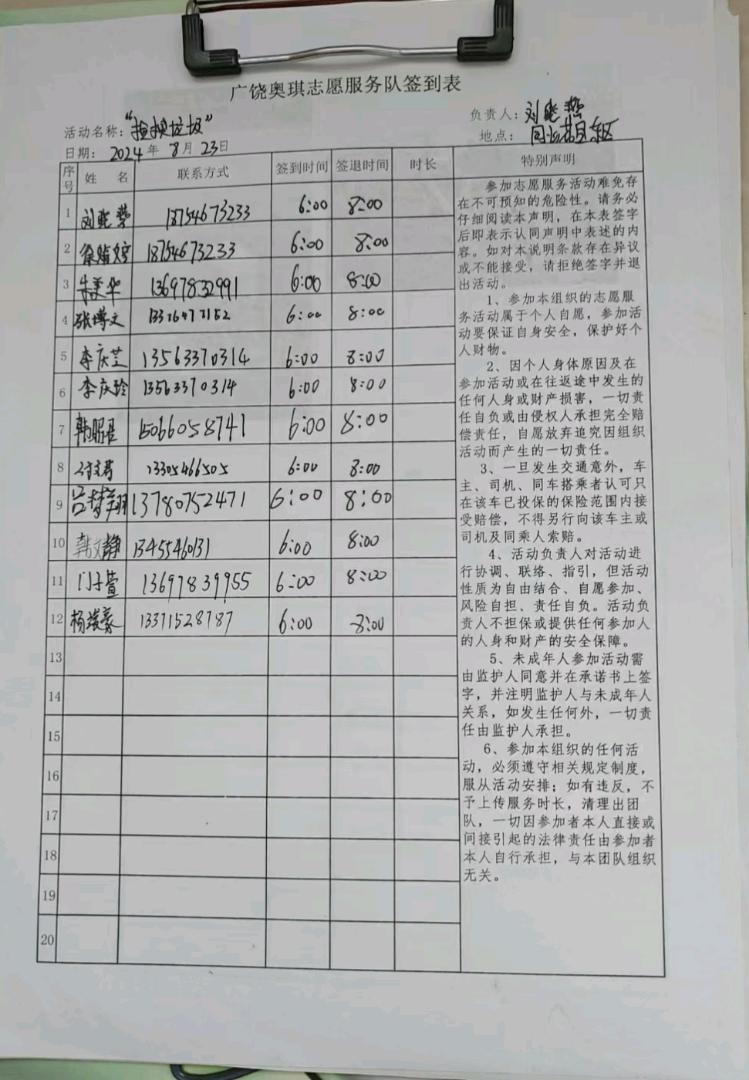 广饶奥琪志愿服务队签到表
活动名称：“捡拾垃圾”
负责人：刘晓
日期：2024年8月23日
地点：
序号 姓名 联系方式 签到时间 签退时间 时长 特别声明
1 刘晓 18754673233 6:00 8:00
2 徐 18754673233 6:00 8:00
3 朱美华 13697832991 6:00 8:00
4 张博文 6:00 8:00
5 李庆芝 13563370314 6:00 8:00
6 李庆玲 13563370314 6:00 8:00
7 韩 15066058741 6:00 8:00
8 13305466505 6:00 8:00
9 吕梦翔 13780752471 6:00 8:00
10 韩文静 13455460131 6:00 8:00
11 门子萱 13697839955 6:00 8:00
12 杨 13371528787 6:00 8:00
13
14
15
16
17
18
19
20
参加志愿服务活动难免存
在不可预知的危险性。请务必
仔细阅读本声明，在本表签字
后即表示认同声明中表述的内
容。如对本说明条款存在异议
或不能接受，请拒绝签字并退
出活动。
1、参加本组织的志愿服
务活动属于个人自愿，参加活
动要保证自身安全，保护好个
人财物。
2、因个人身体原因及在
参加活动或在往返途中发生的
任何人身或财产损害，一切责
任自负或由侵权人承担完全赔
偿责任，自愿放弃追究因组织
活动而产生的一切责任。
3、一旦发生交通意外，车
主、司机、同车搭乘者认可只
在该车已投保的保险范围内接
受赔偿，不得另行向该车主或
司机及同乘人索赔。
4、活动负责人对活动进
行协调、联络、指引，但活动
性质为自由结合、自愿参加、
风险自担、责任自负。活动负
责人不担保或提供任何参加人
的人身和财产的安全保障。
5、未成年人参加活动需
由监护人同意并在承诺书上签
字，并注明监护人与未成年人
关系，如发生任何外，一切责
任由监护人承担。
6、参加本组织的任何活
动，必须遵守相关规定制度，
服从活动安排；如有违反，不
予上传服务时长，清理出团
队，一切因参加者本人直接或
间接引起的法律责任由参加者
本人自行承担，与本团队组织
无关。